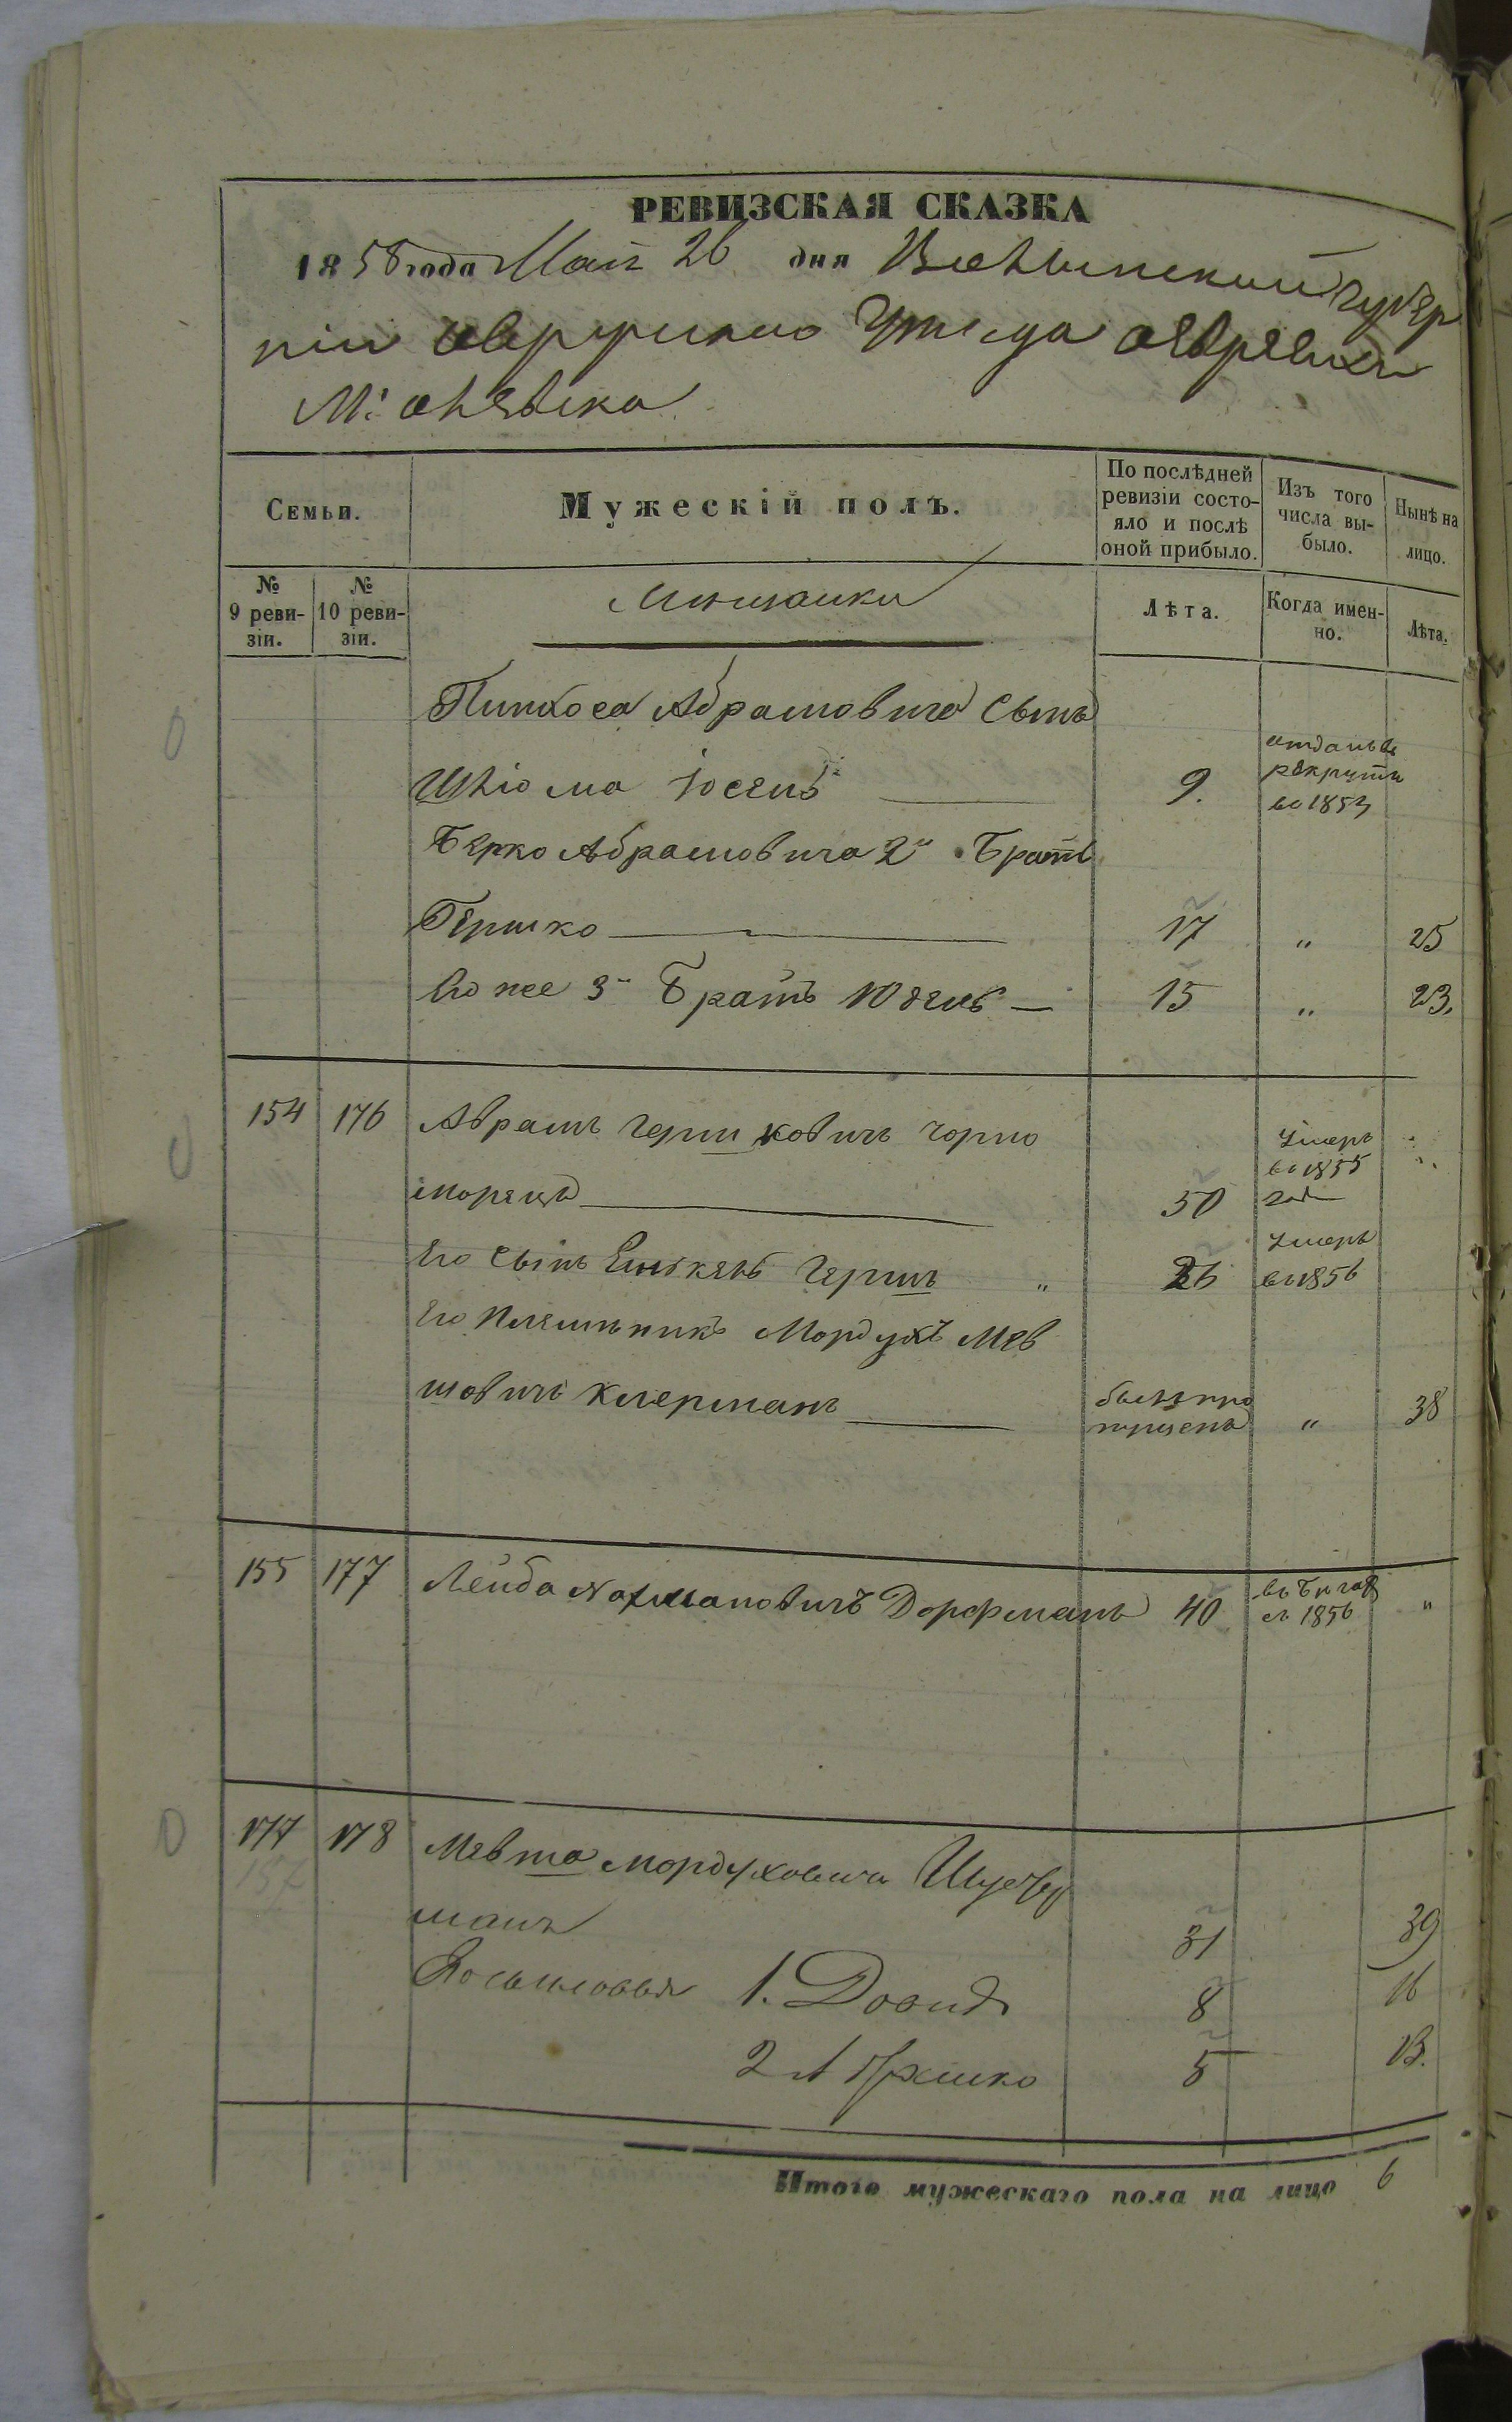 РЕВИЗСКАЯ СКАЗКА
1858 года Маія 26 дня Волынской Губер
ніи Овручскаго Уезда Евреихъ
М: Олевска
Семьи.
Мужескій полъ.
По послѣдней ревизіи состо-
яло и послѣ
оной прибыло.
Изъ того
числа вы-
было.
Нынѣ на
лицо.
№
9 реви-
зіи.
№
10 реви-
зіи.
Мещанки
Лѣта.
Когда имен-
но.
Лѣта.
Пинхоса Абрамовича Сынъ
Шліома Іосепъ 9. отданъ въ
рекруты
во 1853
Берко Абрамовича 2й Братъ
Гершко 17 " 25
Его же 3й Братъ Юдель 15 " 23.
154 176 Абрамъ Гершковичъ Чорно
морецъ 50 Умеръ
во 1855
году
Его Сынъ Гершъ " 26 Умеръ
въ 1856
Его Племынникъ Мордухъ Мев
шовичъ Клерманъ былъ про
пущенъ " 38
155 177 Лейба Нахмановичъ Дорфманъ 40 въ
съ 1856 "
177 178 Мевша Мордуховичъ
157
манъ 31 39
Сыновья 1. Довидъ 8 16
2 5 13.
Итого мужескаго пола на лицо 6